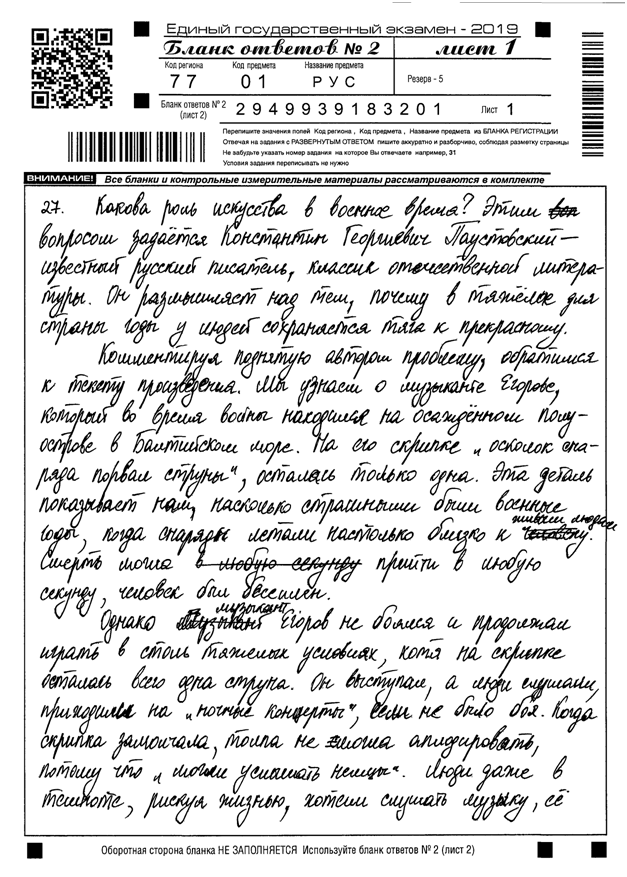 Единый государственный экзамен - 2019
Бланк ответов № 2 лист 1
Код региона Код предмета Название предмета
77 01 РУС Резерв - 5
Бланк ответов № 2 (лист 2) 2949939183201 Лист 1
Перепишите значения полей Код региона, Код предмета, Название предмета из БЛАНКА РЕГИСТРАЦИИ
Отвечая на задания с РАЗВЕРНУТЫМ ОТВЕТОМ пишите аккуратно и разборчиво, соблюдая разметку страницы
Не забудьте указать номер задания на которое Вы отвечаете например, 31
Условия задания переписывать не нужно
ВНИМАНИЕ! Все бланки и контрольные измерительные материалы рассматриваются в комплекте
27. Какова роль искусства в военное время? Этим
вопросом задаётся Константин Георгиевич Паустовский —
известный русский писатель, классик отечественной литера-
туры. Он размышляет над тем, почему в тяжёлое для
страны годы у людей сохраняется тяга к прекрасному.
Комментируя поднятую автором проблему, обратимся
к тексту произведения. Мы узнаём о музыканте Егорове,
который во время войны находился на осаждённом полу-
острове в Балтийском море. На его скрипке „осколок сна-
ряда порвал струны", осталась только одна. Эта деталь
показывает нам, насколько страшными были военные
годы, когда снаряды летали настолько близко к живым людям.
Смерть могла в любую секунду прийти в любую
секунду, человек был бессилен.
Однако музыкант Егоров не боялся и продолжал
играть в столь тяжелых условиях, хотя на скрипке
осталась всего одна струна. Он выступал, а люди слушали,
приходили на „ночные концерты", если не было боя. Когда
скрипка замолчала, толпа не могла аплодировать,
потому что „могли услышать немцы". Люди даже в
темноте, рискуя жизнью, хотели слушать музыку, её
Оборотная сторона бланка НЕ ЗАПОЛНЯЕТСЯ Используйте бланк ответов № 2 (лист 2)